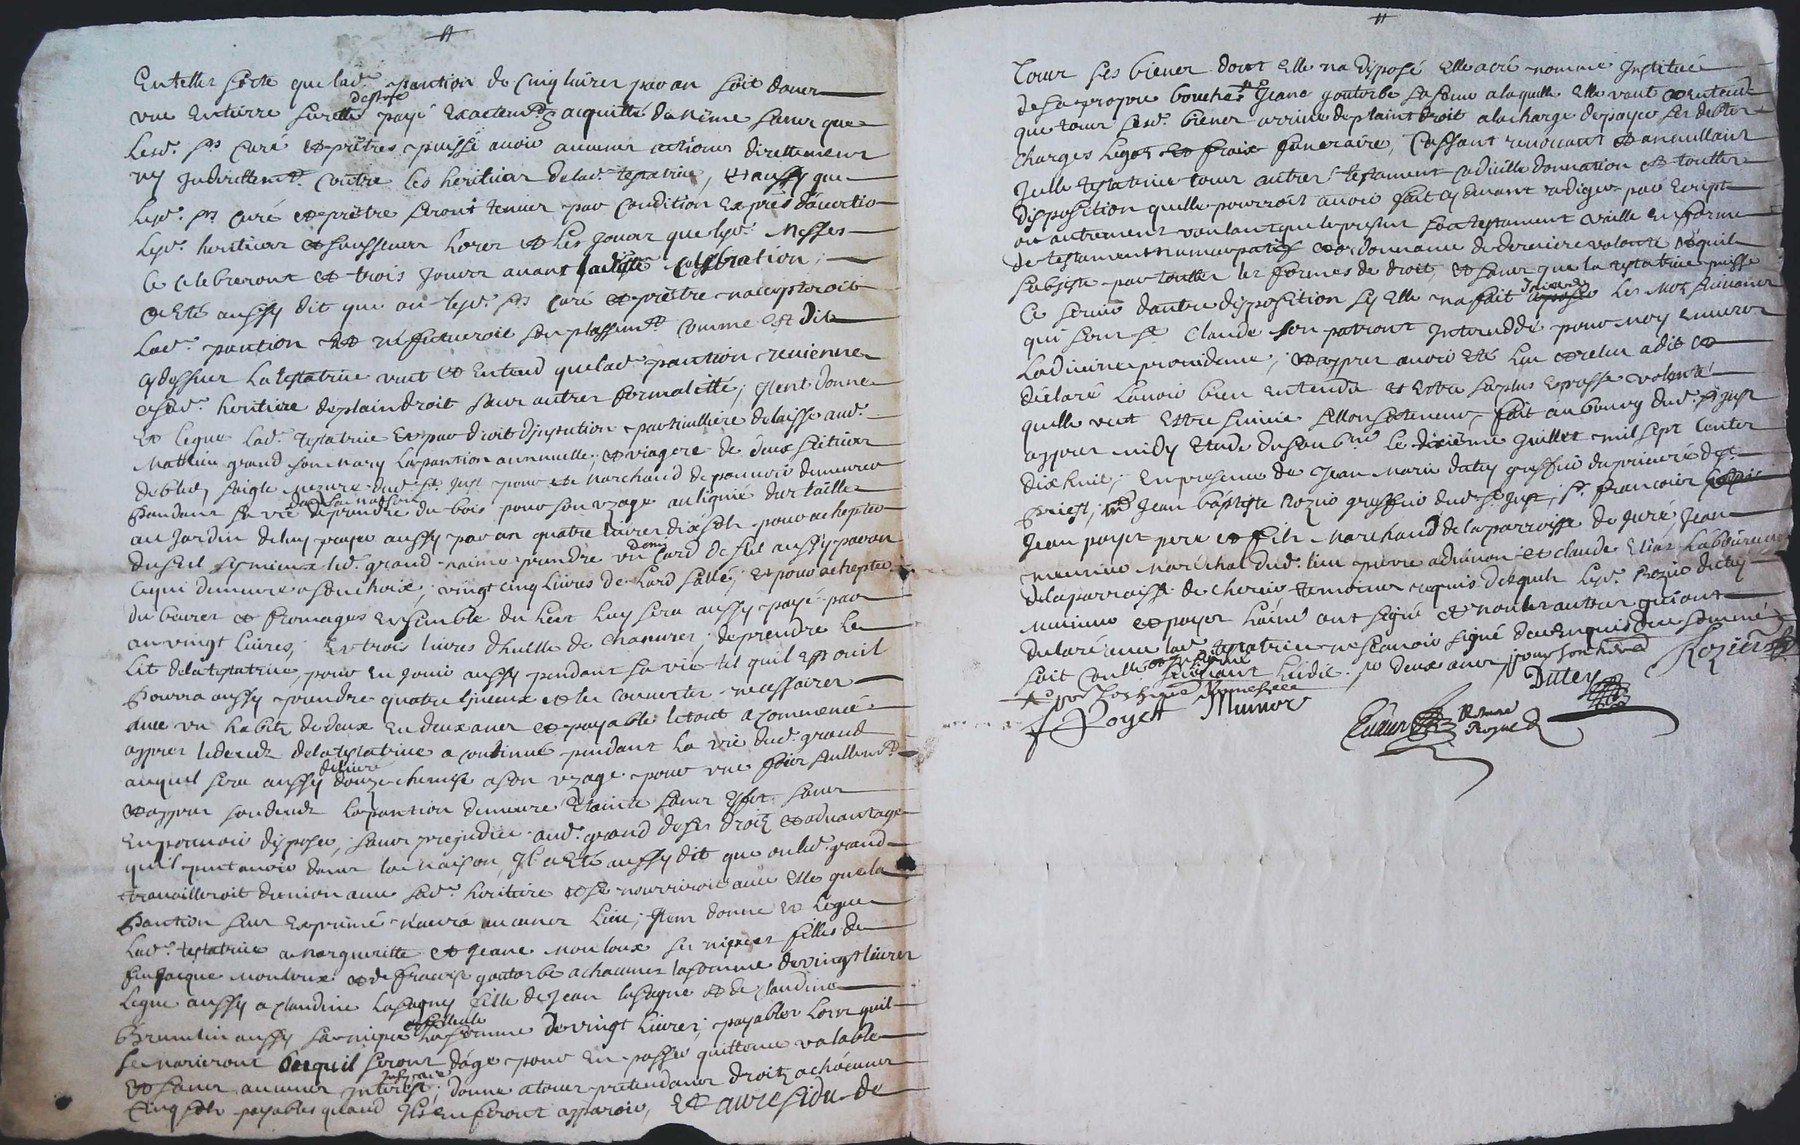 En telle sorte que lad. pantion de cinq livres par an soit dans
payé exactemt & acquitté de même sans que
lesd. srs curé et prêtres puisse avoir aucunes actions directement
ny indirectemt. contre les héritiers de lad. testatrice, et aussy que
lesd. srs curé et prêtre seront tenus par condition expres d'avertir
lesd. héritiers et successeurs l'heure et les jours que lesd. Messes
ce celebreront et trois jours avant lad. celebration;
a été aussy dit que au lesd. srs curé et prêtre n'accepteroit
lad. pantion et refuseroit son plassemt comme est dit
cy dessus la testatrice veut et entend que lad. pantion revienne
a sad. héritiere de plain droit sans autres formalitté; Item donne
et legue lad. testatrice et par droit d'institution particulliere delaisse aud.
Mathieu grand son mary la pantion annuelle et viagere de deux setiers
de bled seigle mezure dud. st Just pour et marchand de pouvoir demeurer
pandant sa vie dans la maison de prendre du bois pour son uzage
au jardin de luy payer aussy par an quatre livres dix sols pour achepter
du sel sy mieux led. grand n'aime prendre un card de sel aussy par an
ce qui demeure a son choix; vingt cinq livres de lard sallé; et pour achepter
du beurre et fromages ensemble du lait luy sera aussy payé par
an vingt livres; et trois livres d'huille de chanures; de prendre le
lit de la testatrice pour en jouir aussy pendant sa vie tel quil est ou il
pourra aussy prendre quatre linceux et les couvertes necessaires
avec un habitz de deux en deux ans et payable le tout a commencé
appres le decedz de la testatrice a continué pendant la vie dud. grand
auquel sera aussy délivré douze chemise a son uzage pour une fois sullemt
et appres son decedz la pantion demeure étainte sans effet sans
en pouvoir disposer, sans prejudice aud. grand de ses droitz et advantage
qu'il peut avoir dans la maison, Il a été aussy dit que ou led. grand
travailleroit d'union avec sad. héritiere et se nourriroit avec elle que la
pantion sus exprimé n'aura aucunes lieu; Item donne et legue
lad. testatrice a Margueritte et Jeane Mouloux ses nieces filles de
feu Jacque Mouloux et de Francoise goutorbe a chacunes la somme de vingt livres
legue aussy a Claudine Lasagne fille de Jean Lasagne et de Claudine
Brunelin aussy sa niece la somme de vingt livres; payables lors quil
se marieront ou quil seront d'age pour en passer quittance valable
et sans aucunes interest; donne a tous pretendans droitz a chacuns
cinq sols payables quand ils en feront apparoir, Et au residu de
tous ses biens dont elle n'a disposé elle a cré nommé institué
de sa propre bouches Jeane goutorbe sa sœur a laquelle elle veut et entend
que tous sesd. biens arrive de plaint droit a la charge de payer ses debtes
charges legatz et fraix funeraire, Cassant revoccant et annullant
Icelle testatrice tous autres testament codicille donnation et touttes
disposition quelle pourroit avoir fait cy devant rediger par escript
ou autrement voulant que le present soit testament vaille en forme
de testament nuncupatif et ordonnance de derniere volonté et quil
subsiste par touttes les formes de droit, et sans que la testatrice puisse
ce servir d'autre disposition sy elle na fait les Mots suivants
qui sont St. Claude son patront intercedde pour moy envers
la divine providence; et appres avoir été lue et relue a dit et
déclaré l'avoir bien entendu et estre sa plus expresse volonté
quelle veut estre suivie sellon sa teneur, fait au bourg dud. st Just
appres midy étude du soubné le dixième juillet mil sept centz
dix huit; en presence de Jean Marie Dutey greffier du prieuré de st
priest, Me Jean Baptiste Rozier greffier dud. st Just, sr. francois
Jean payet pere et fils Marchand de la parroisse de Juré, Jean
meunier Maréchal dud. lieu pierre et claude Elias laboureurs
de la parroisse de cherier temoins requis desquels lesd. Rozier dutey
Munier et payet l'ainé ont signé et non les autres qui ont
declaré avec lad. testatrice ne scavoir signé de ce enquis et sommé
Dutey
Rozier
J Poyet Munier